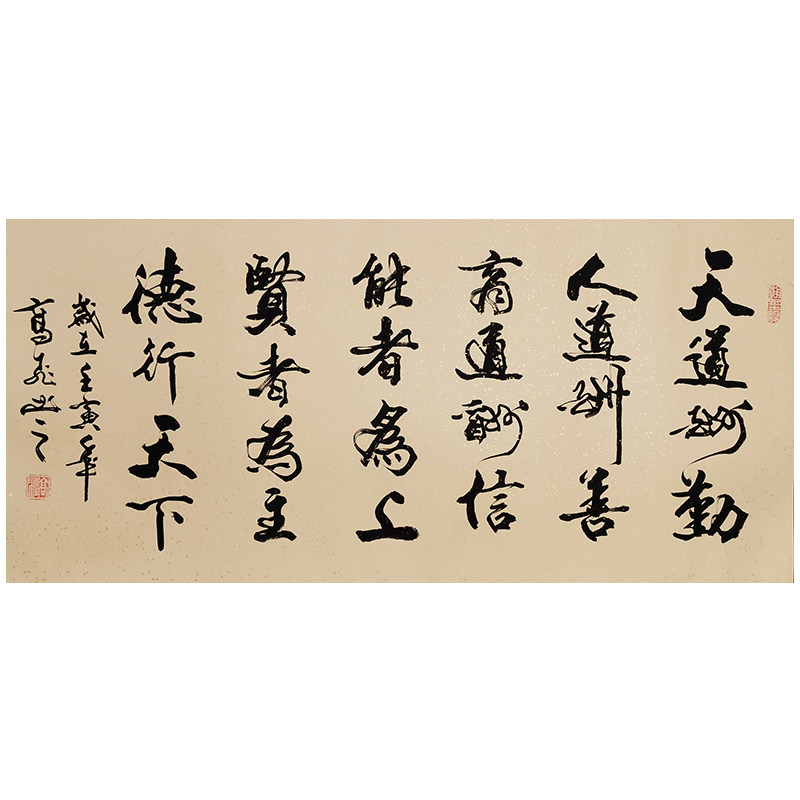 天道酬勤
人道酬善
商道酬信
能者為上
賢者為主
德行天下
歲在壬寅年
高飛书之